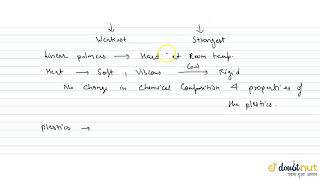 Weakest Strongest
Linear polmers → Hard at Room temp.
Heat → Soft, Viscous Cool → Rigid
No change in Chemical Composition & properties of
the plastics.
plestics →
doubtnut